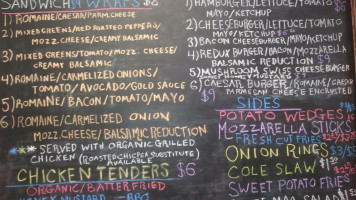 SANDWICH & WRAPS $8
1) ROMAINE/CAESAR/PARM.CHEESE
2) MIXED GREENS/RED ROASTED PEPPERS/
MOZZ. CHEESE/CREAMY BALSAMIC
3) MIXED GREENS/TOMATO/MOZZ. CHEESE/
CREAMY BALSAMIC
4) ROMAINE/CARMELIZED ONIONS/
TOMATO/AVOCADO/GOLD SAUCE
5) ROMAINE/BACON/TOMATO/MAYO
6) ROMAINE/CARMELIZED ONION
MOZZ.CHEESE/BALSAMIC REDUCTION
SERVED WITH ORGANIC GRILLED
CHICKEN (ROASTED CHICKEN SUBSTITUTE)
AVAILABLE
CHICKEN TENDERS $6
ORGANIC/BATTER FRIED
HONEY MUSTARD BBQ
1) HAMBURGER/LETTUCE/TOMATO
MAYO/KETCHUP
2) CHEESEBURGER/LETTUCE/TOMATO
MAYO/KETCHUP
3) BACON CHEESEBURGER/MAYO/KETCHUP
4) REDUX BURGER/BACON/MOZZARELLA
BALSAMIC REDUCTION $9
5) MUSHROOM SWISS CHEESE BURGER
6) CAESAR BURGER/ROMAINE/CAESAR
PARMESAN CHEESE ENCRUSTED
$9
SIDES
POTATO WEDGES
MOZZARELLA STICKS
FRESH CUT FRIES
ONION RINGS $3
COLE SLAW
SWEET POTATO FRIES